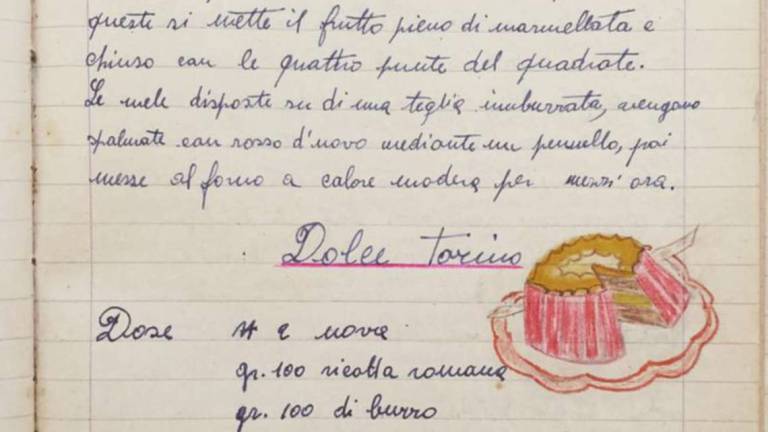 queste si mette il frutto pieno di marmellata e
chiuso con le quattro punte del quadrato.
Le mele disposte su di una teglia imburrata, vengano
spalmate con rosso d'uovo mediante un pennello, poi
messe al forno a calore modera per mezz'ora.
Dolce Torino
Dose 2 uova
gr. 100 ricotta romana
gr. 100 di burro